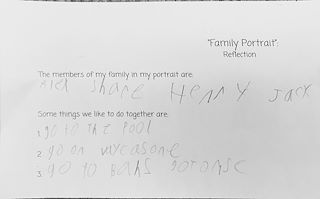 "Family Portrait":
Reflection
The members of my family in my portrait are:
Shane Henry Jack
Some things we like to do together are:
1. go to the Pool
2. go on
3. go to